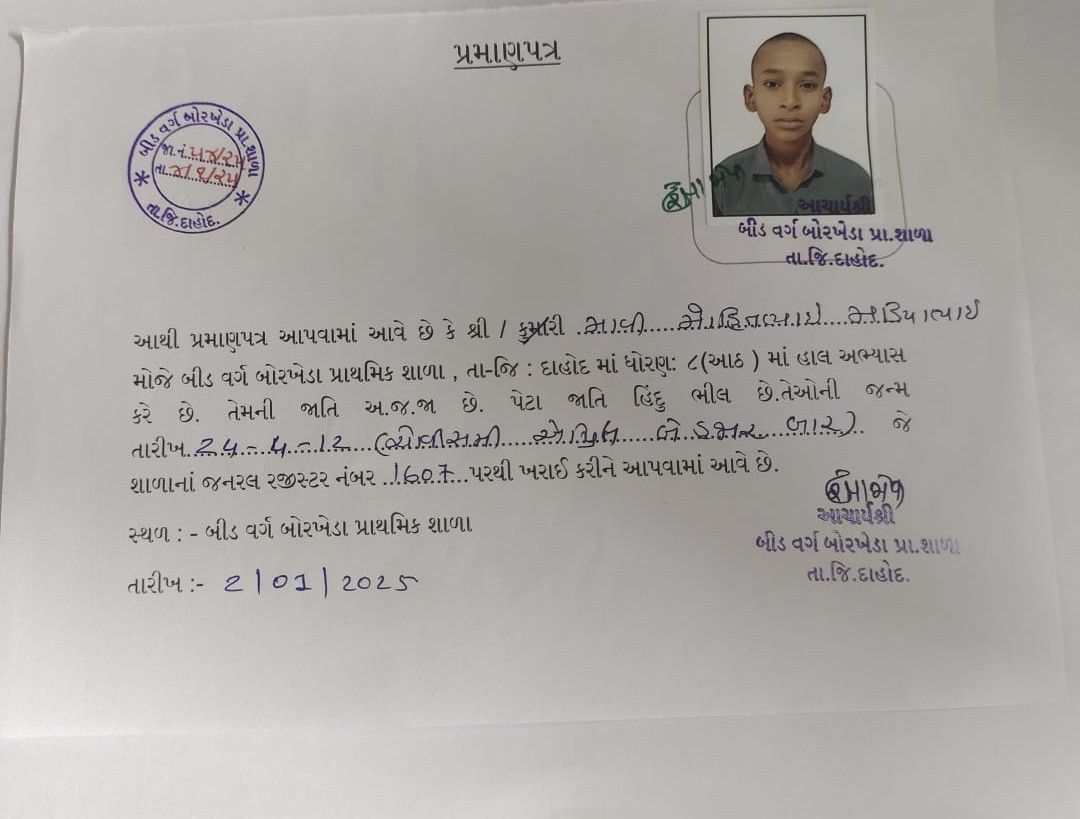 પ્રમાણપત્ર
બીડ વર્ગ બોરખેડા પ્રા.શાળા
જા.નં.
તા.
તા.જિ.દાહોદ.
આચાર્યશ્રી
બીડ વર્ગ બોરખેડા પ્રા.શાળા
તા.જિ.દાહોદ.
આથી પ્રમાણપત્ર આપવામાં આવે છે કે શ્રી / કુમારી .ભાભી.... મોહિતભાઈ મડિયાભાઈ
મોજે બીડ વર્ગ બોરખેડા પ્રાથમિક શાળા , તા-જિ : દાહોદ માં ધોરણ: ૮(આઠ ) માં હાલ અભ્યાસ
કરે છે. તેમની જાતિ અ.જ.જા છે. પેટા જાતિ હિંદુ ભીલ છે.તેઓની જન્મ
તારીખ. (ચોવીસમી.....એપ્રિલ.....બે હજાર..બાર). જે
શાળાનાં જનરલ રજીસ્ટર નંબર ..1607...પરથી ખરાઈ કરીને આપવામાં આવે છે.
સ્થળ : - બીડ વર્ગ બોરખેડા પ્રાથમિક શાળા
આચાર્યશ્રી
બીડ વર્ગ બોરખેડા પ્રા.શાળા
તા.જિ.દાહોદ.
તારીખ :- 2/01/2025